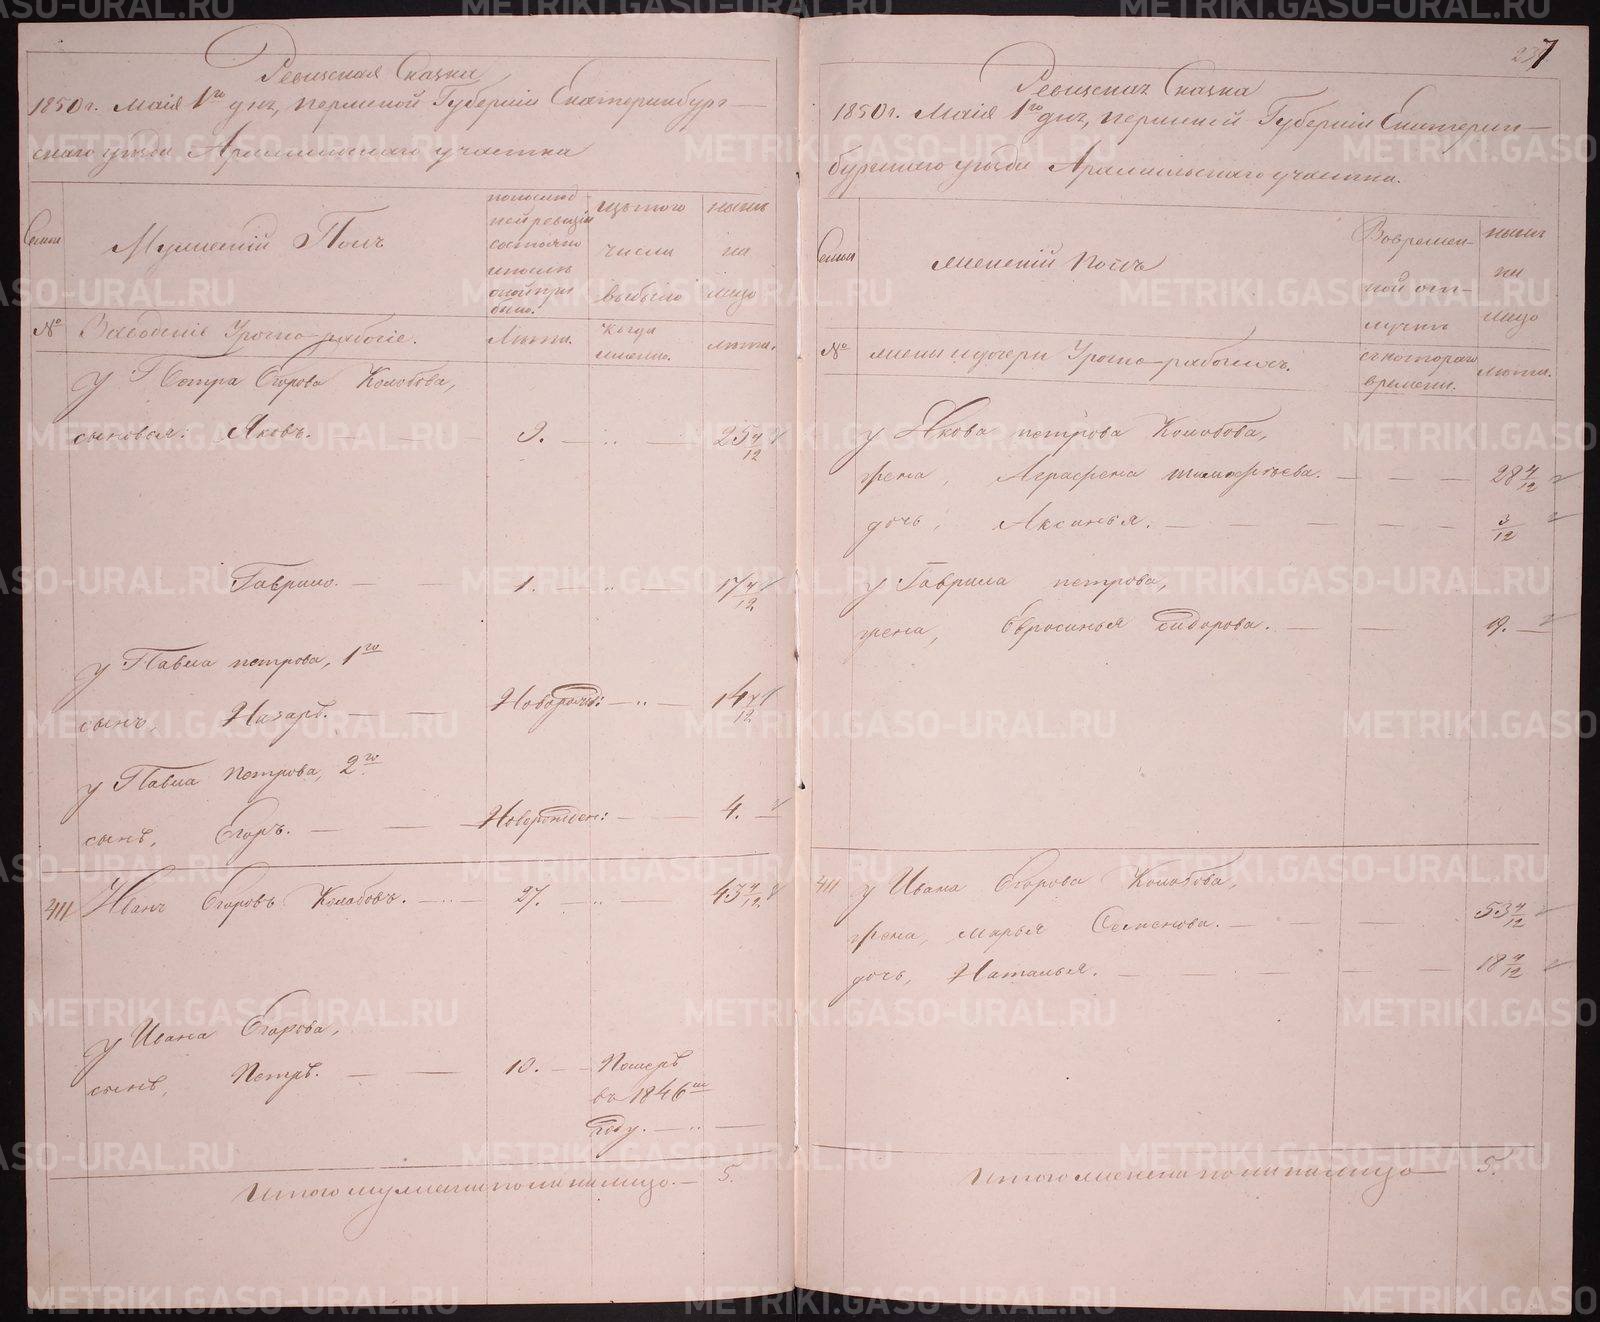 Ревизская Сказка
1850г. Маія 1го дня, Пермской Губерніи Екатеринбург-
скаго уезда Арамильскаго участка
Семьи
Мужескій Полъ
по последней ревизіи состояло и после оной прибыло.
Изъ того числа выбыло
Ныне на лицо
№
Заводскіе Урочно-рабочіе.
Лета.
Когда именно.
Лета.
У Петра Егорова Колобова,
сыновья: Яковъ. — 9. — „ — 25 4/12
Гаврило. — 1. — „ — 17 4/12
у Павла петрова, 1го
сынъ, Назаръ. — Новорожд: — „ — 14 4/12
у Павла петрова, 2го
сынъ, Егоръ. — Новорожден: — 4. —
411 Иванъ Егоровъ Колобовъ. — 27. — „ — 43 4/12
у Ивана Егорова,
сынъ, Петръ. — 10. — Померъ
въ 1846м
году. — „ —
Итого мужеска пола на лицо. — 5.
237
Ревизская Сказка
1850г. Маія 1го дня, Пермской Губерніи Екатерин-
бургскаго уезда Арамильскаго участка.
Семьи
Женскій Полъ
Во временной отлучке
Ныне на лицо
№
жены и дочери Урочно-рабочихъ.
съ котораго времени.
Лета.
у Якова петрова Колобова,
жена, Аграфена Тимофеева. — 28 4/12
дочь, Аксинья. — 3/12
у Гаврила петрова,
жена, Ефросинья Сидорова. — 19. —
411 у Ивана Егорова Колобова,
жена, Марья Семенова. — 53 4/12
дочь, Наталья. — 18 4/12
Итого женска пола на лицо — 5.
METRIKI.GASO-URAL.RU